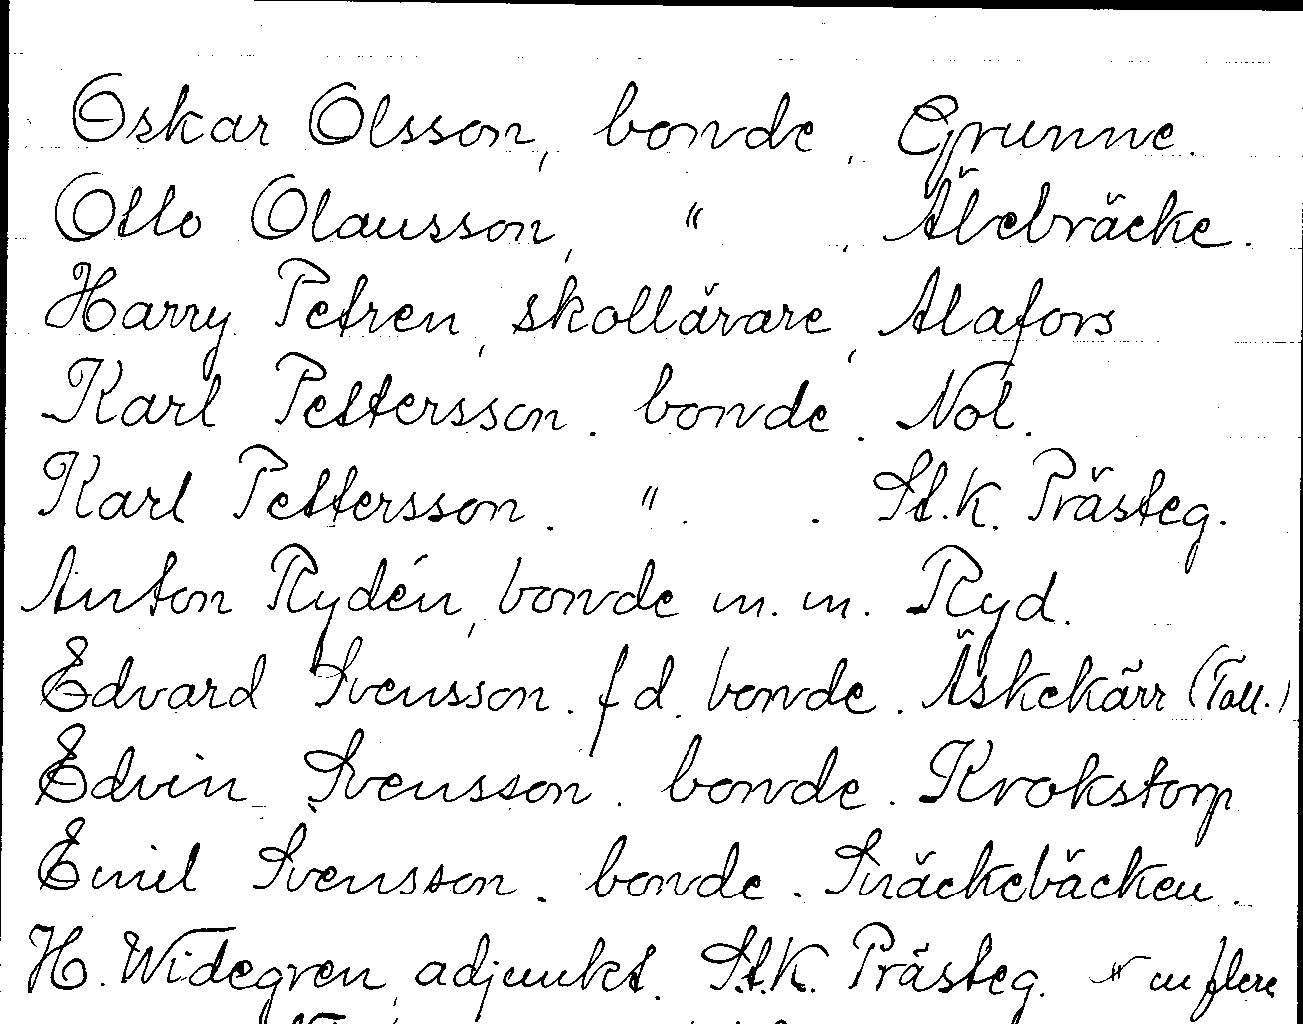 Oskar Olsson, bonde, Grunne.
Otto Olausson, " , Älvebräcke.
Harry Petren, skollärare, Alafors
Karl Pettersson. bonde. Nol.
Karl Pettersson. " . St.K. Prästeg.
Anton Rydén, bonde m.m. Ryd.
Edvard Svensson. f d. bonde. Äskekärr (Tall.)
Edvin Svensson. bonde. Krokstorp
Emil Svensson. bonde. Snäckebäcken.
H. Widegren, adjunkt. St.K. Prästeg. m flere